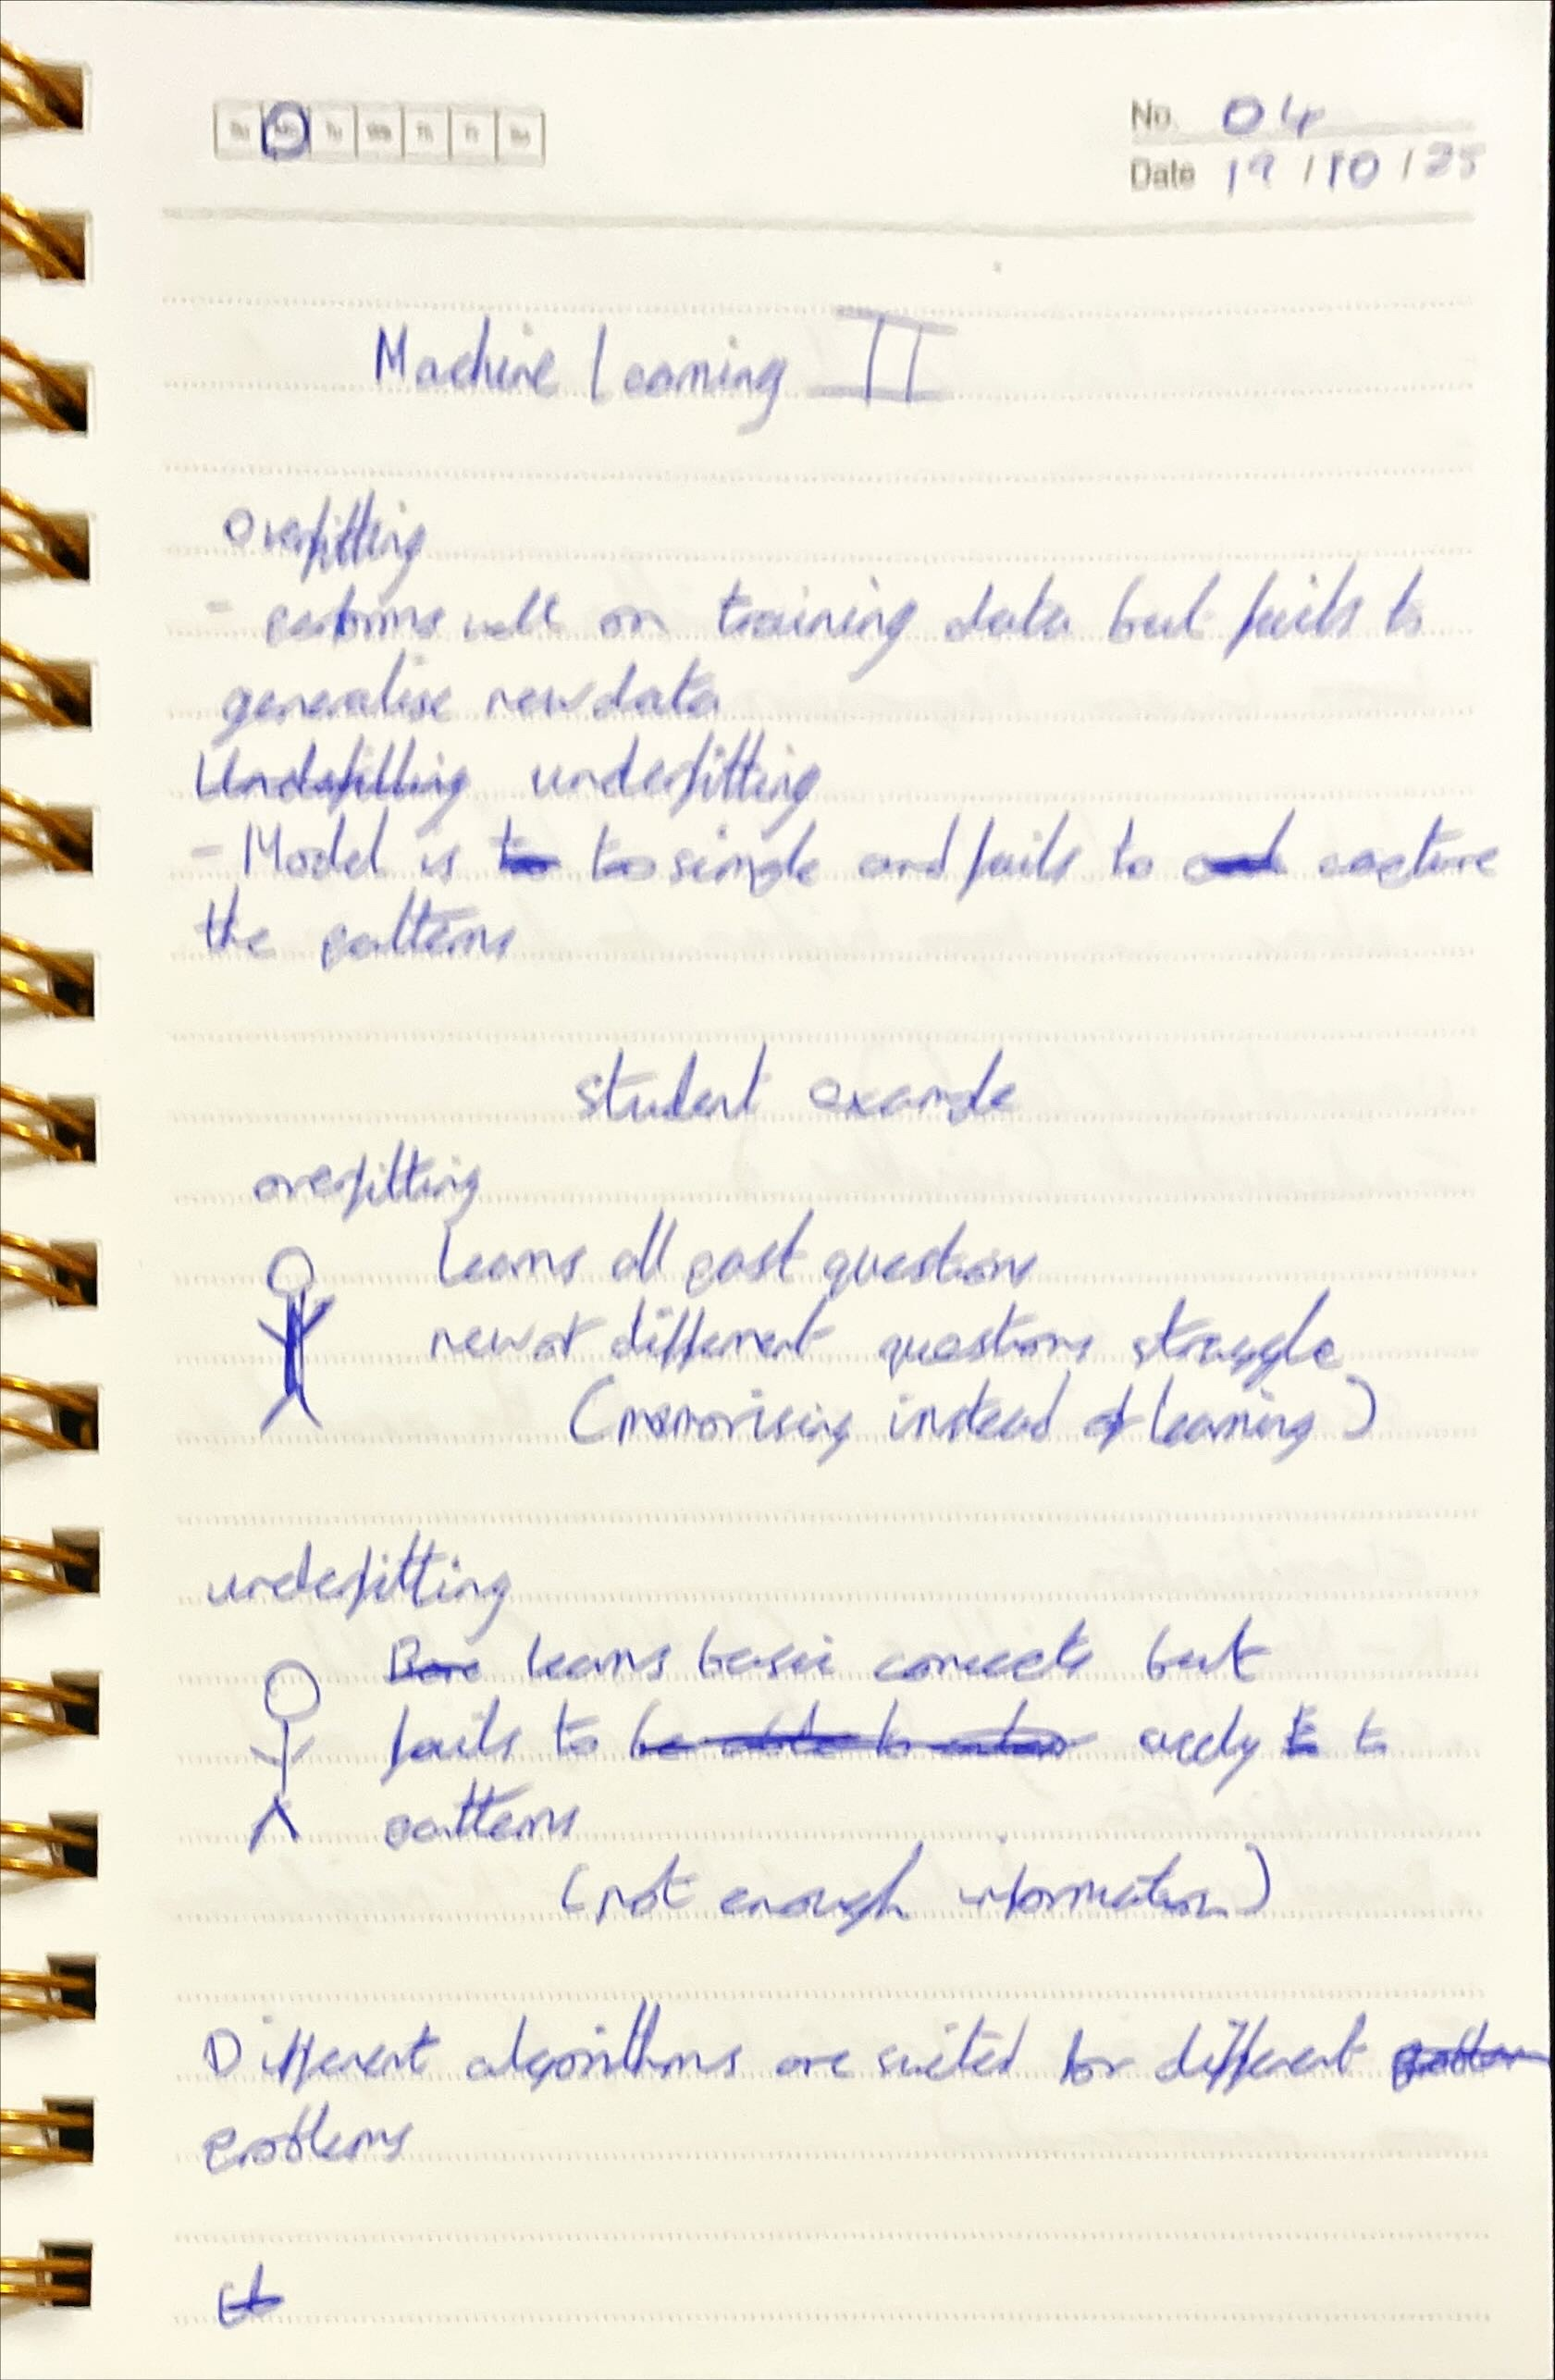 Su Mo Tu We Th Fr Sa
No. 04
Date 19 / 10 / 25
Machine Learning II
Overfitting
- performs well on training data but fails to
generalise new data
Underfitting underfitting
- Model is to too simple and fails to capture
the patterns
student example
overfitting
learns all past question
new or different questions struggle
(memorising instead of learning)
underfitting
learns basic concepts but
fails to be able to apply to to
patterns
(not enough information)
Different algorithms are suited for different
problems